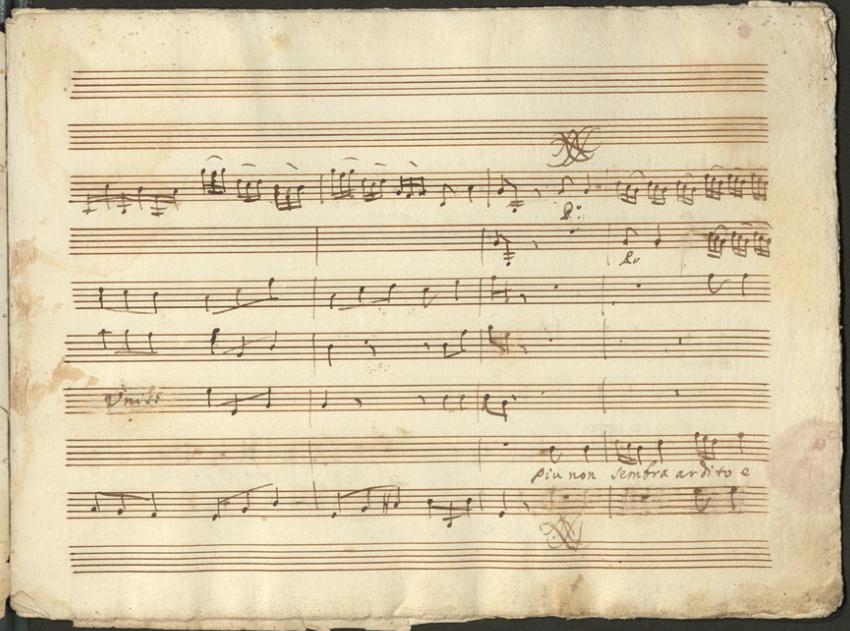 p:
po
Unis:
piu non sembra ardito e